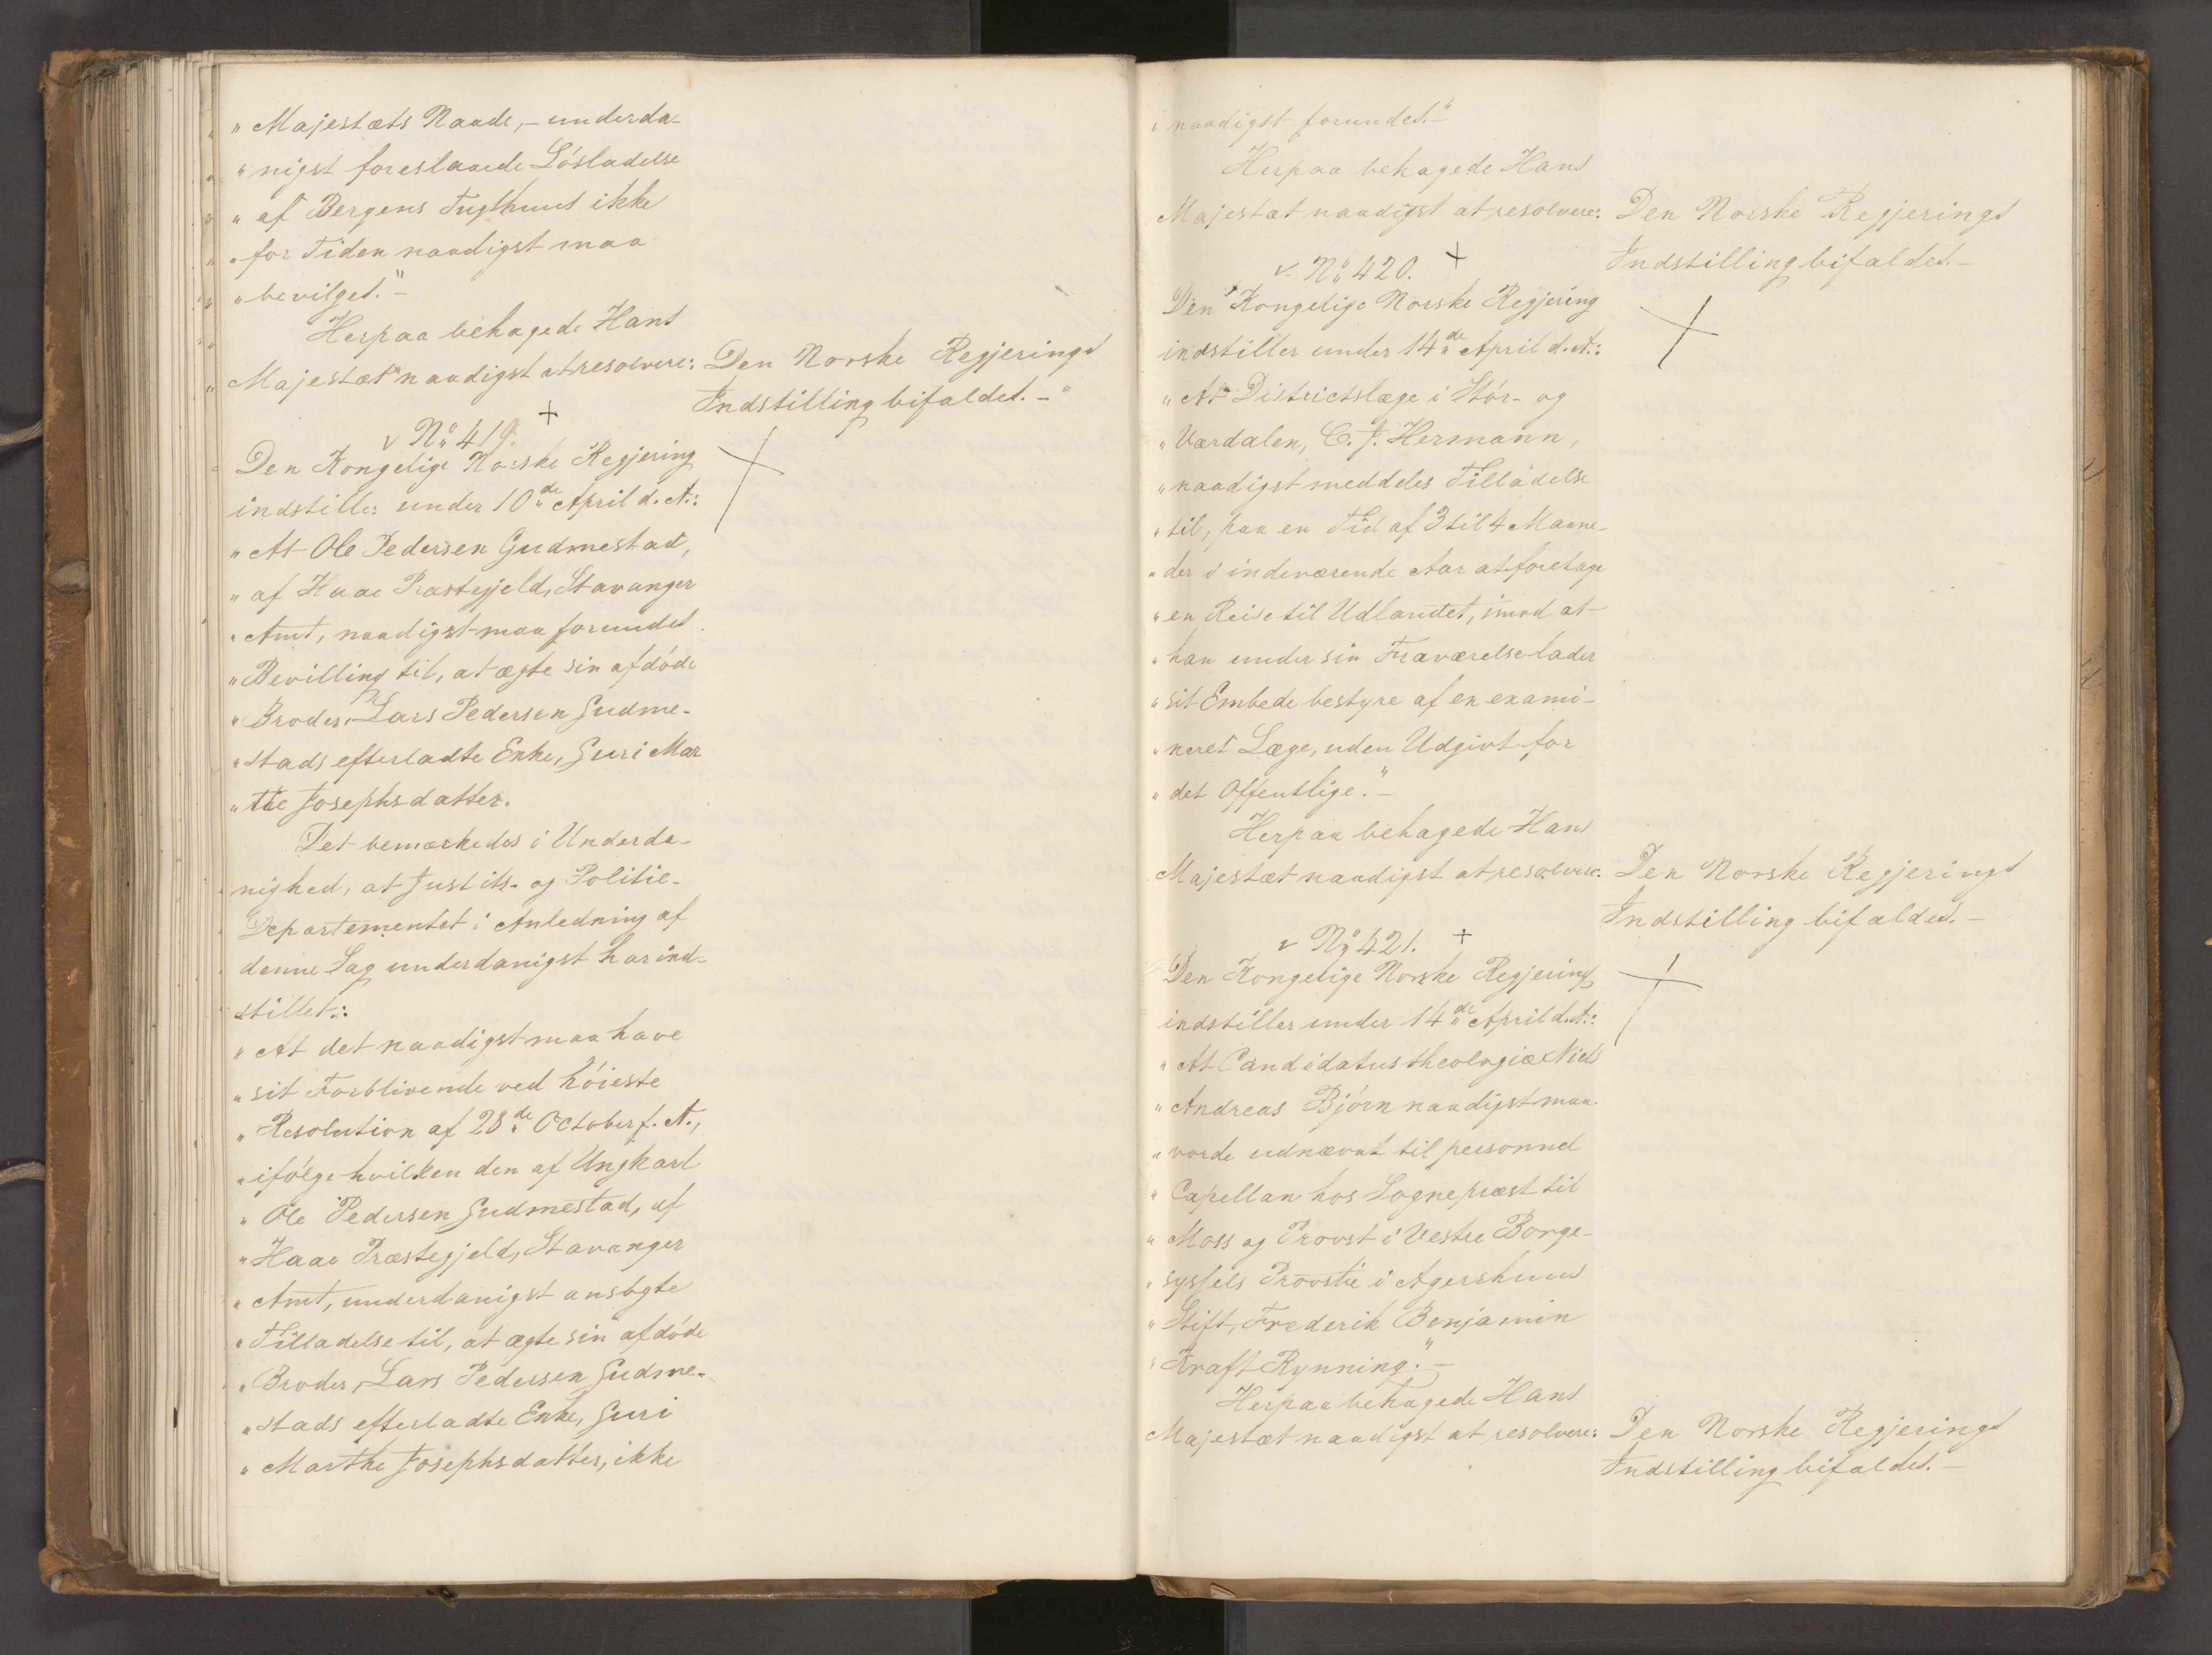 „Majestæts Naade, – underda-
„nigst foreslaaede Løsladelse
„af Bergens Tugthuus ikke
„for Tiden naadigst maa
„bevilges.“ –
Herpaa behagede Hans
Majestæt naadigst at resolvere:
Den Norske Regjerings
Indstilling bifaldes. –
v No 419. +
Den Kongelige Norske Regjering
indstiller under 10de April d. A.:
„At Ole Pedersen Gudmestad,
„af Haae Præstegjeld, Stavanger
„Amt, naadigst maa forundes
„Bevilling til, at ægte sin afdøde
„Broder, Lars Pedersen Gudme-
„stads efterladte Enke, Guri Mar
„the Josephsdatter.
Det bemærkedes i Underda-
nighed, at Justits- og Politie-
Departementet i Anledning af
denne Sag underdanigst har ind-
stillet:
„At det naadigst maa have
„sit Forblivende ved høieste
„Resolution af 28de October f. A.,
„ifølge hvilken den af Ungkarl
„Ole Pedersen Gudmestad, af
„Haae Præstegjeld, Stavanger
„Amt, underdanigst ansøgte
„Tilladelse til, at ægte sin afdøde
„Broder, Lars Pedersen Gudme-
„stads efterladte Enke, Guri
„Marthe Josephsdatter, ikke
„naadigst forundes.“ –
Herpaa behagede Hans
Majestæt naadigst at resolvere:
Den Norske Regjerings
Indstilling bifaldes. –
v. No 420. +
Den Kongelige Norske Regjering
indstiller under 14de April d. A.:
„At Districtslæge i Stør- og
„Værdalen, C. F. Hermann,
„naadigst meddeles Tilladelse
„til, paa en Tid af 3 til 4 Maane-
„der i indeværende Aar at foretage
„en Reise til Udlandet, imod at
„han under sin Fraværelse lader
„sit Embede bestyre af en exami-
„neret Læge, uden Udgivt for
„det Offentlige.“ –
Herpaa behagede Hans
Majestæt naadigst at resolvere:
Den Norske Regjerings
Indstilling bifaldes. –
v No 421. +
Den Kongelige Norske Regjering
indstiller under 14de April d. A.:
„At Candidatus theologiæ Niels
„Andreas Bjørn naadigst maa
„vorde udnævnt til personnel
„Capellan hos Sognepræst til
„Moss og Provst i Vestre Borge-
„syssels Provstie i Agershuus
„Stift, Frederik Benjamin
„Kraft Rynning.“ –
Herpaa behagede Hans
Majestæt naadigst at resolvere:
Den Norske Regjerings
Indstilling bifaldes. –